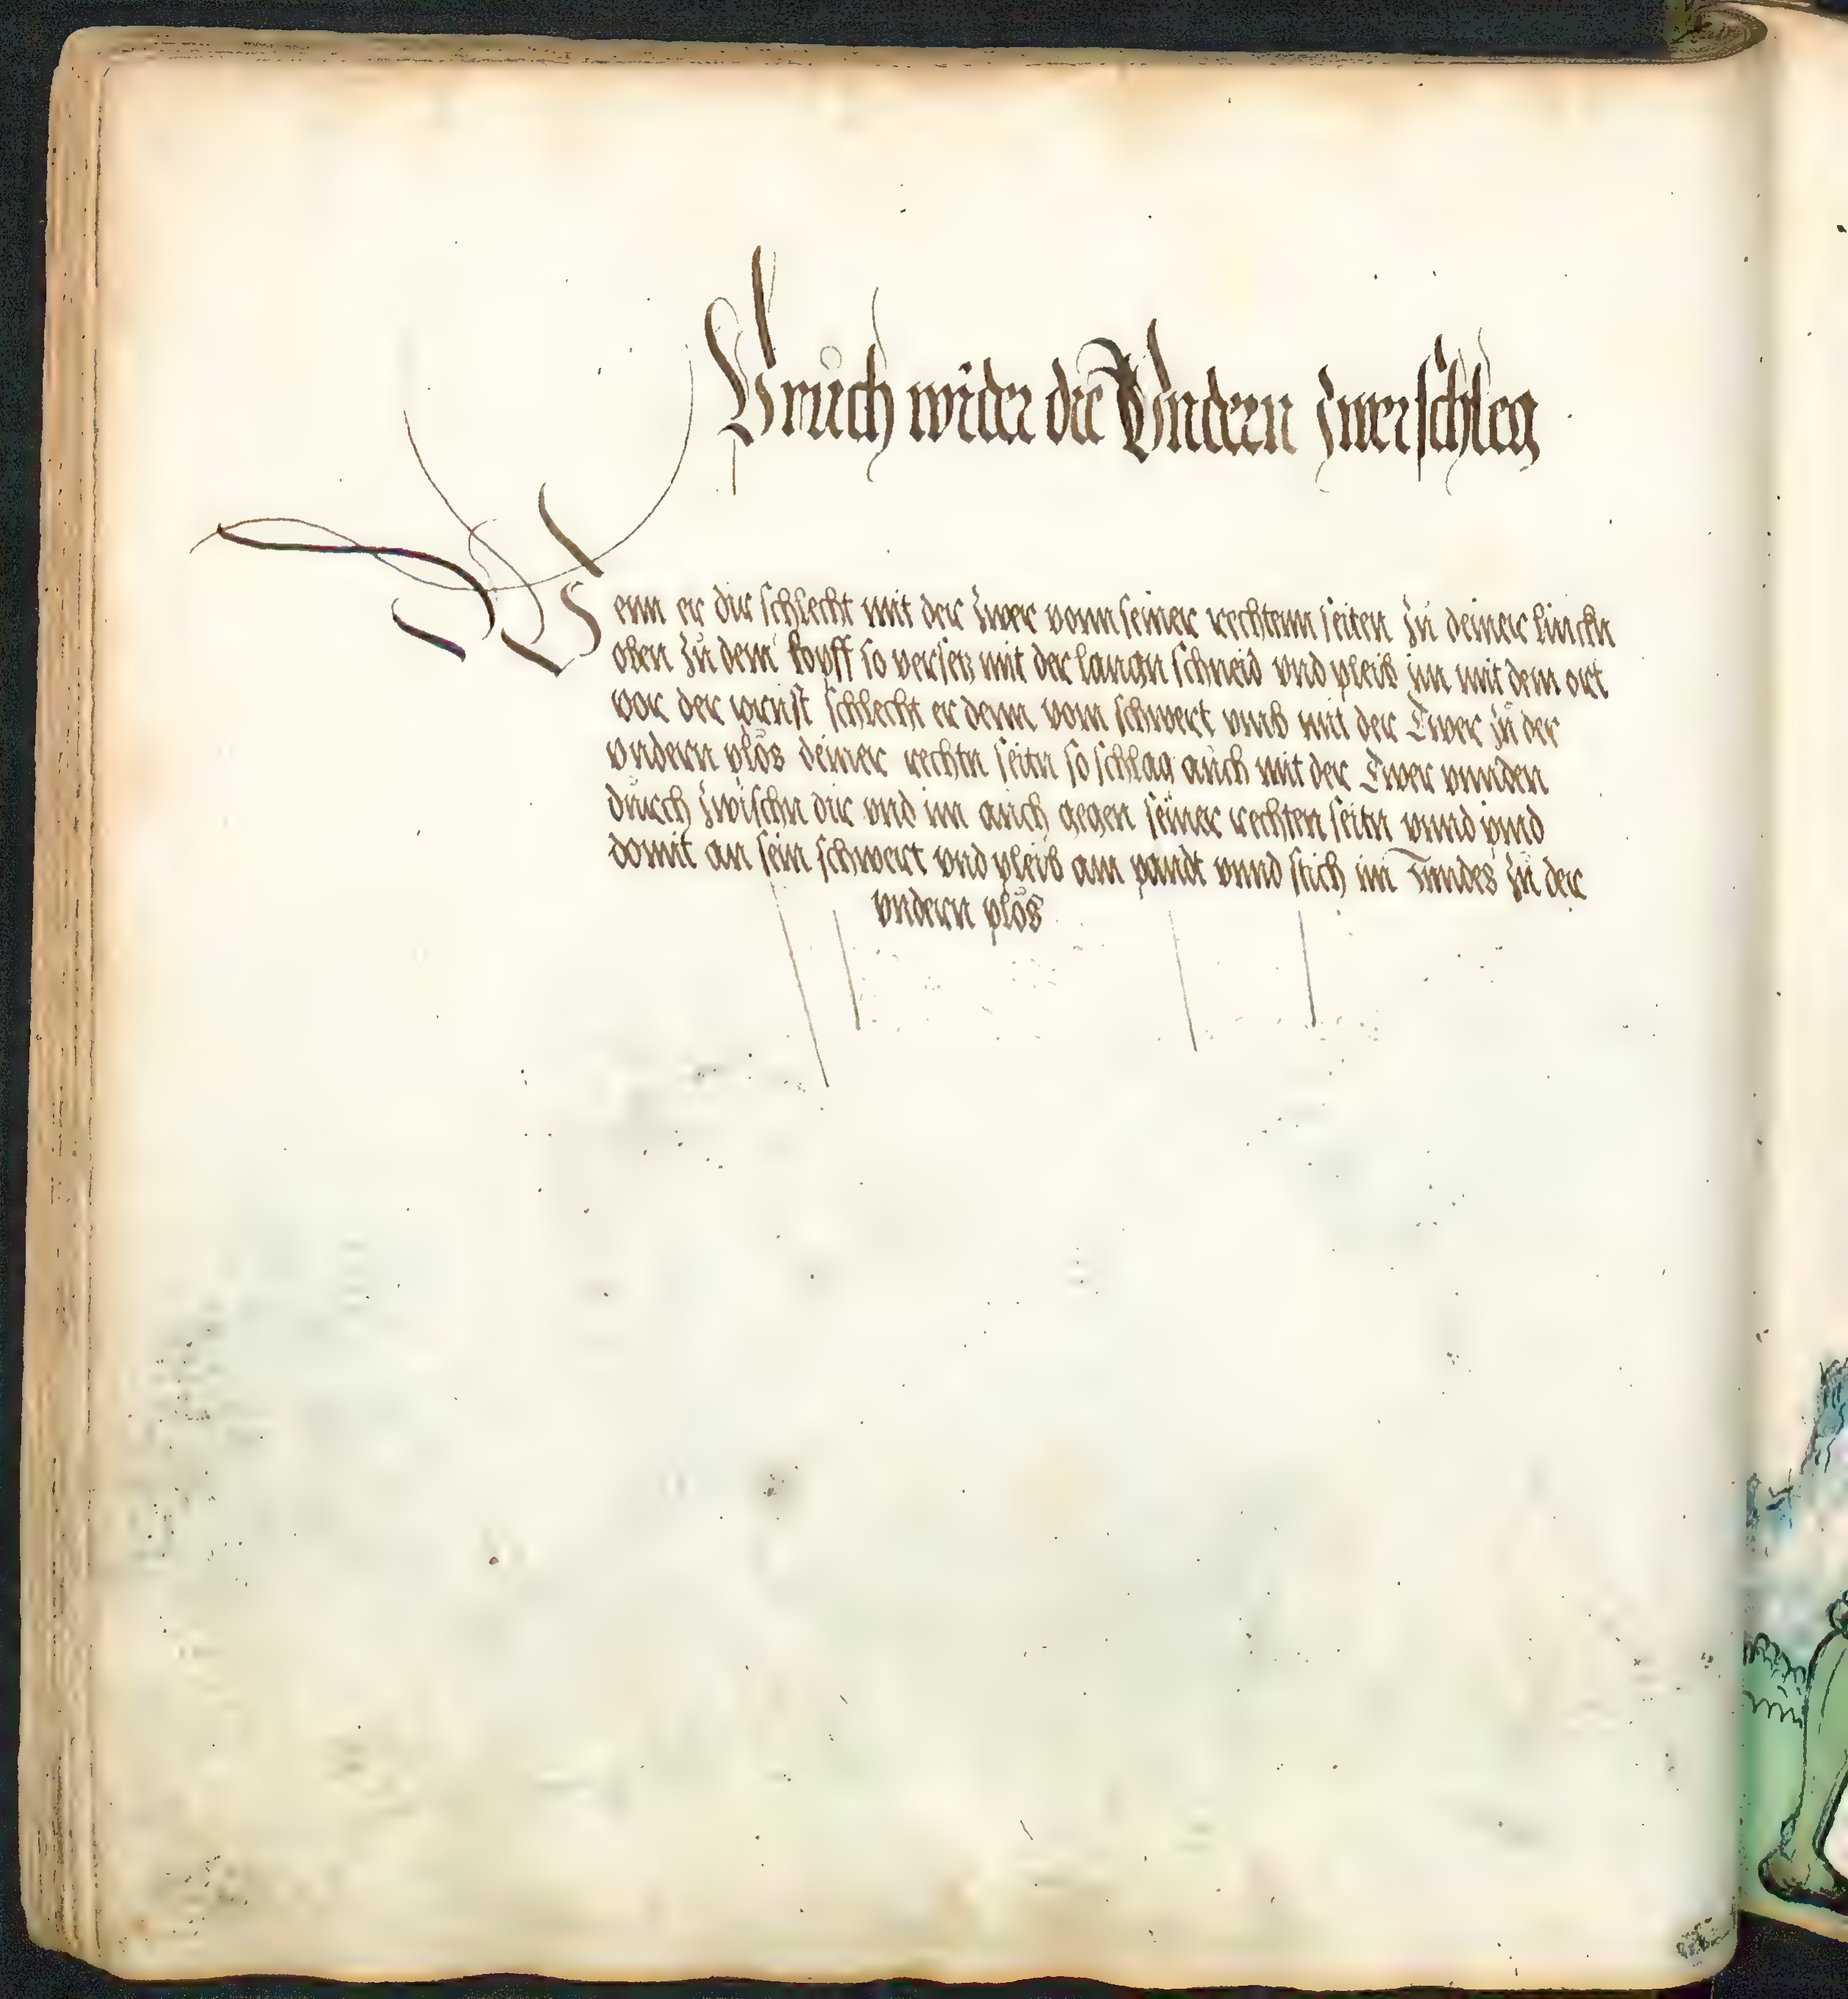 Bruch wider die Undern zwerschleg
Wenn er dir schlecht mit der zwer vonn seiner rechtenn seiten zu deiner linckn
oben zu dem kopff so versetz mit der langn schneid vnd pleib im mit dem ort
vor der prust schlecht er denn vom schwert vmb mit der Twer zu der
vndern plös deiner rechtn seitn so schlag auch mit der Twer vnnden
durch zwischn dir vnd im auch gegen seiner rechten seitn vnnd pind
domit an sein schwert vnd pleib am pandt vnnd stich im Inndes zu der
vndern plös